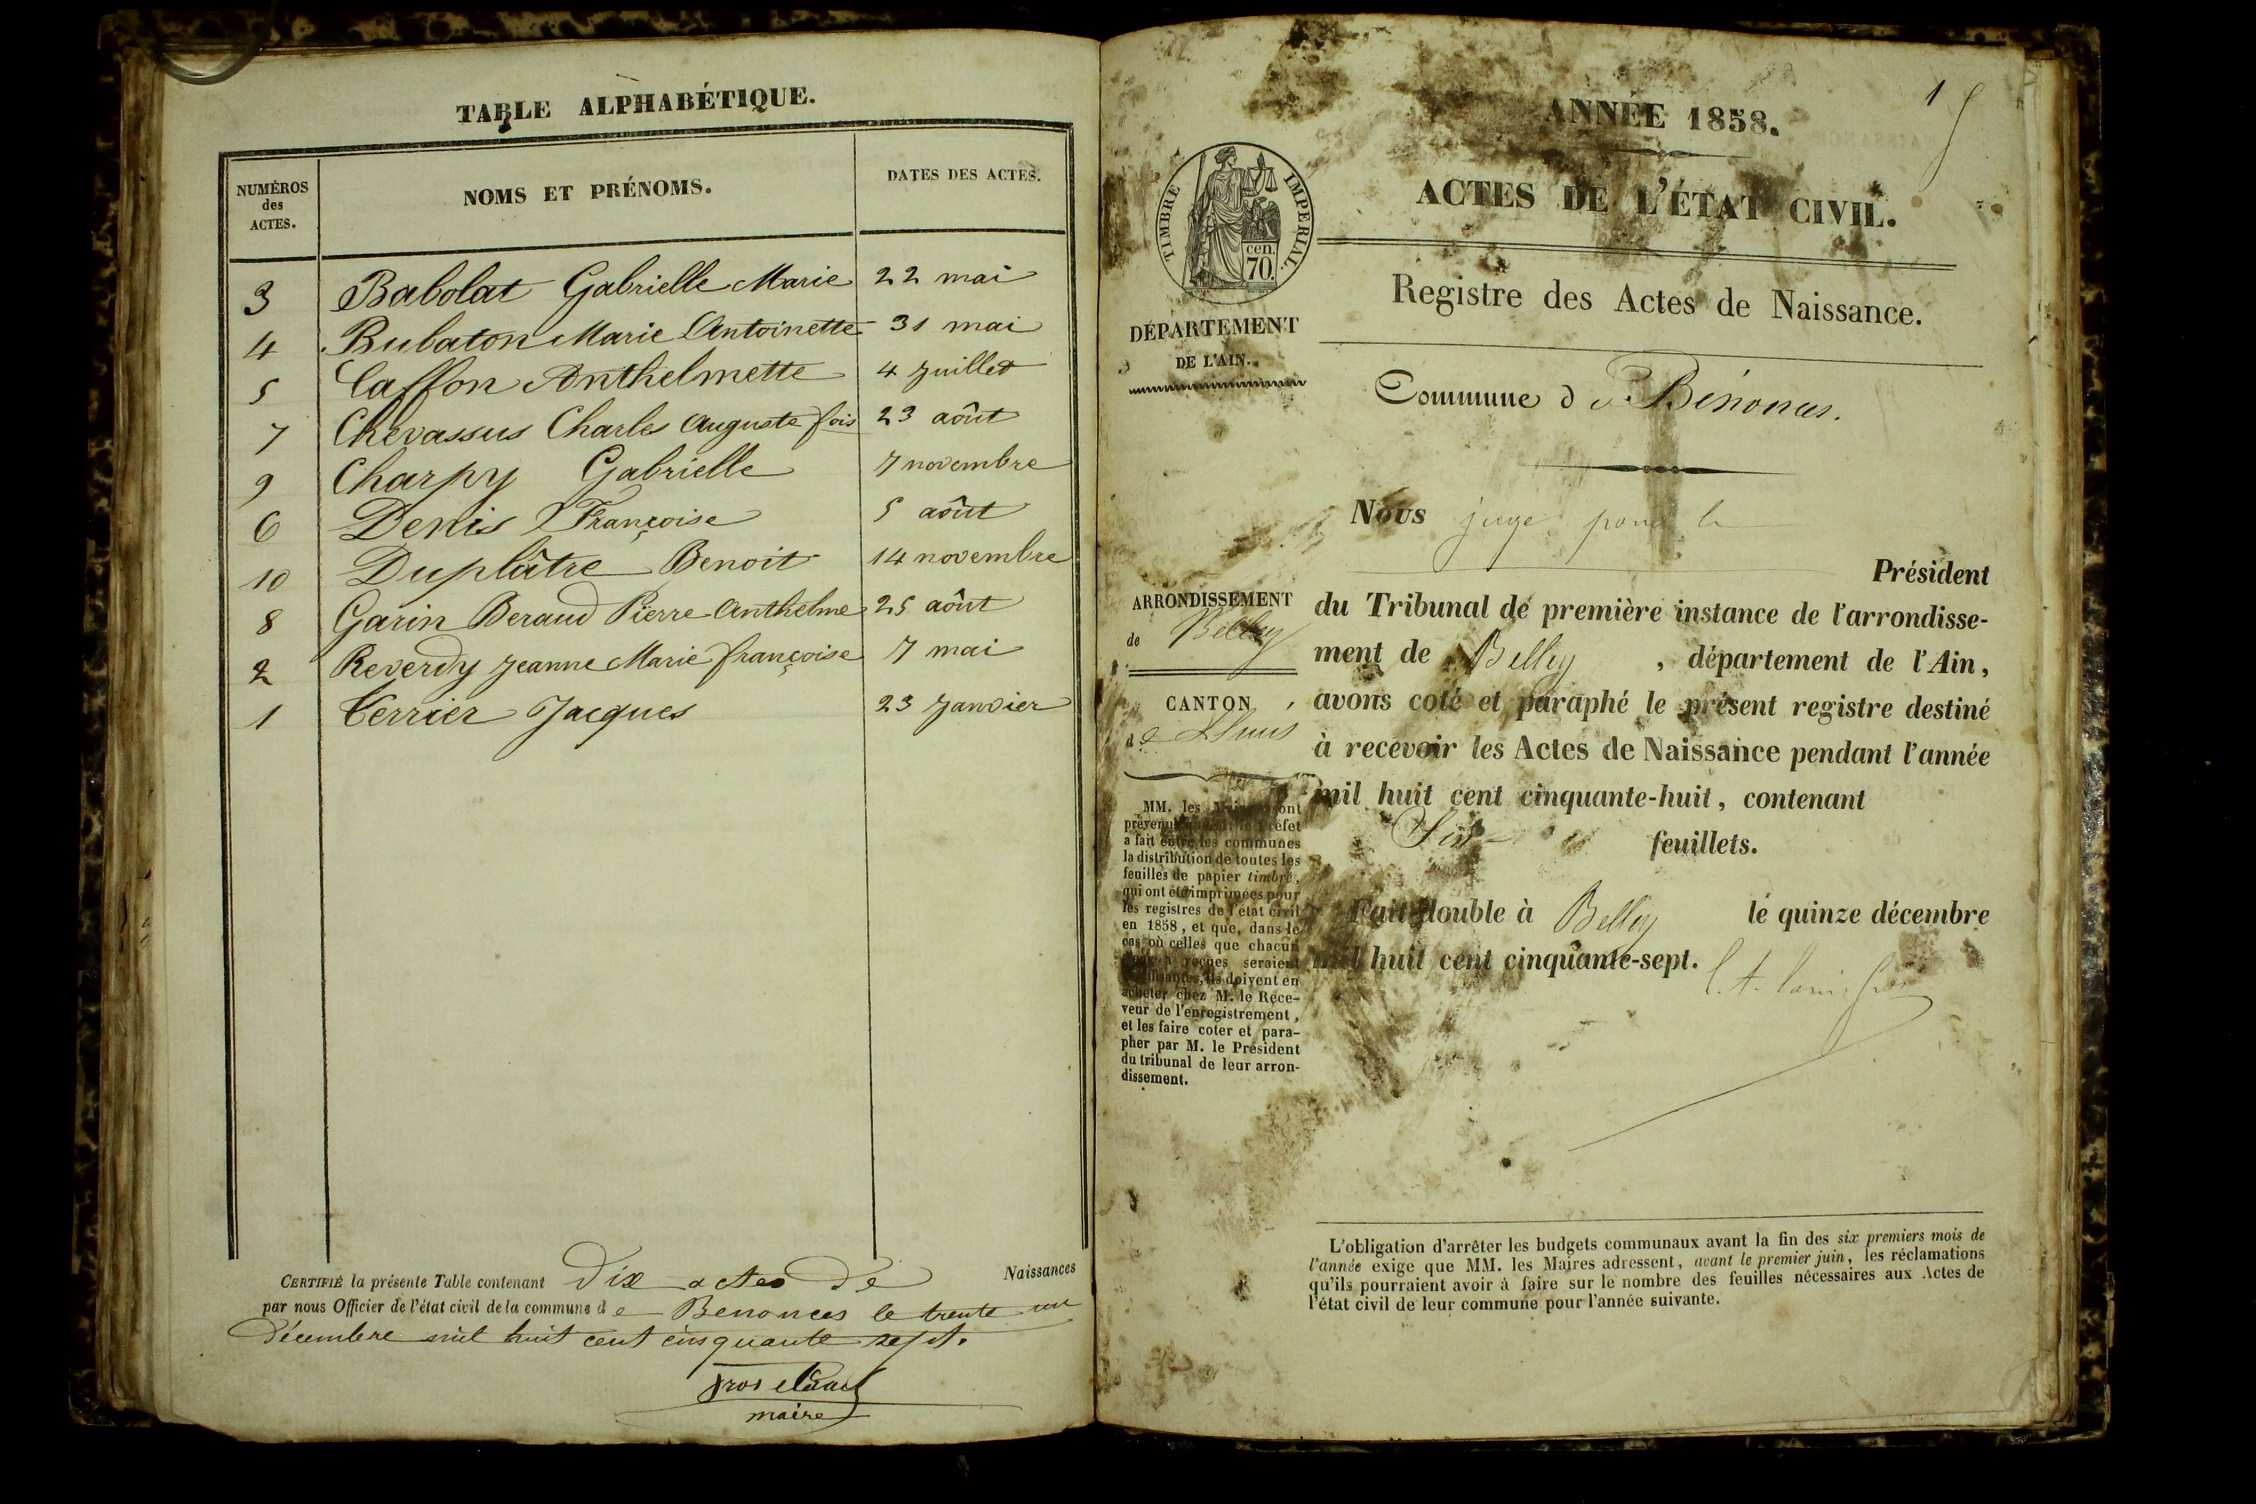 TABLE ALPHABÉTIQUE.
NUMÉROS des ACTES. NOMS ET PRÉNOMS. DATES DES ACTES.
3 Babolat Gabrielle Marie 22 mai
4 Bubaton Marie Antoinette 31 mai
5 Caffon Anthelmette 4 Juillet
7 Chevassus Charles Auguste fois 23 aôut
9 Charpy Gabrielle 7 novembre
6 Denis Françoise 5 aôut
10 Duplâtre Benoit 14 novembre
8 Garin Beraud Pierre Anthelme 25 aôut
2 Reverdy Jeanne Marie françoise 7 mai
1 Terrier Jacques 23 Janvier
CERTIFIÉ la présente Table contenant Dix actes De Naissances
par nous Officier de l'état civil de la commune de Benonces le trente un
Décembre mil huit cent cinquante sept.
maire
1
ANNÉE 1858.
ACTES DE L'ÉTAT CIVIL.
TIMBRE IMPERIAL.
cen.
70.
Registre des Actes de Naissance.
DÉPARTEMENT
DE L'AIN.
Commune de Bénonces.
Nous juge pour le
Président
ARRONDISSEMENT
de Belley
CANTON
de Lhuis
du Tribunal de première instance de l'arrondisse-
ment de Belley, département de l'Ain,
avons coté et paraphé le présent registre destiné
à recevoir les Actes de Naissance pendant l'année
mil huit cent cinquante-huit, contenant
Six feuillets.
Fait double à Belley le quinze décembre
mil huit cent cinquante-sept.
MM. les Maires sont
prévenus Préfet
a fait entre les communes
la distribution de toutes les
feuilles de papier timbré,
qui ont été imprimées pour
les registres de l'état civil
en 1858, et que, dans le
cas où celles que chacun
reçues seraient
ils doivent en
acheter chez M. le Rece-
veur de l'enregistrement,
et les faire coter et para-
pher par M. le Président
du tribunal de leur arron-
dissement.
L'obligation d'arrêter les budgets communaux avant la fin des six premiers mois de
l'année exige que MM. les Maires adressent, avant le premier juin, les réclamations
qu'ils pourraient avoir à faire sur le nombre des feuilles nécessaires aux Actes de
l'état civil de leur commune pour l'année suivante.